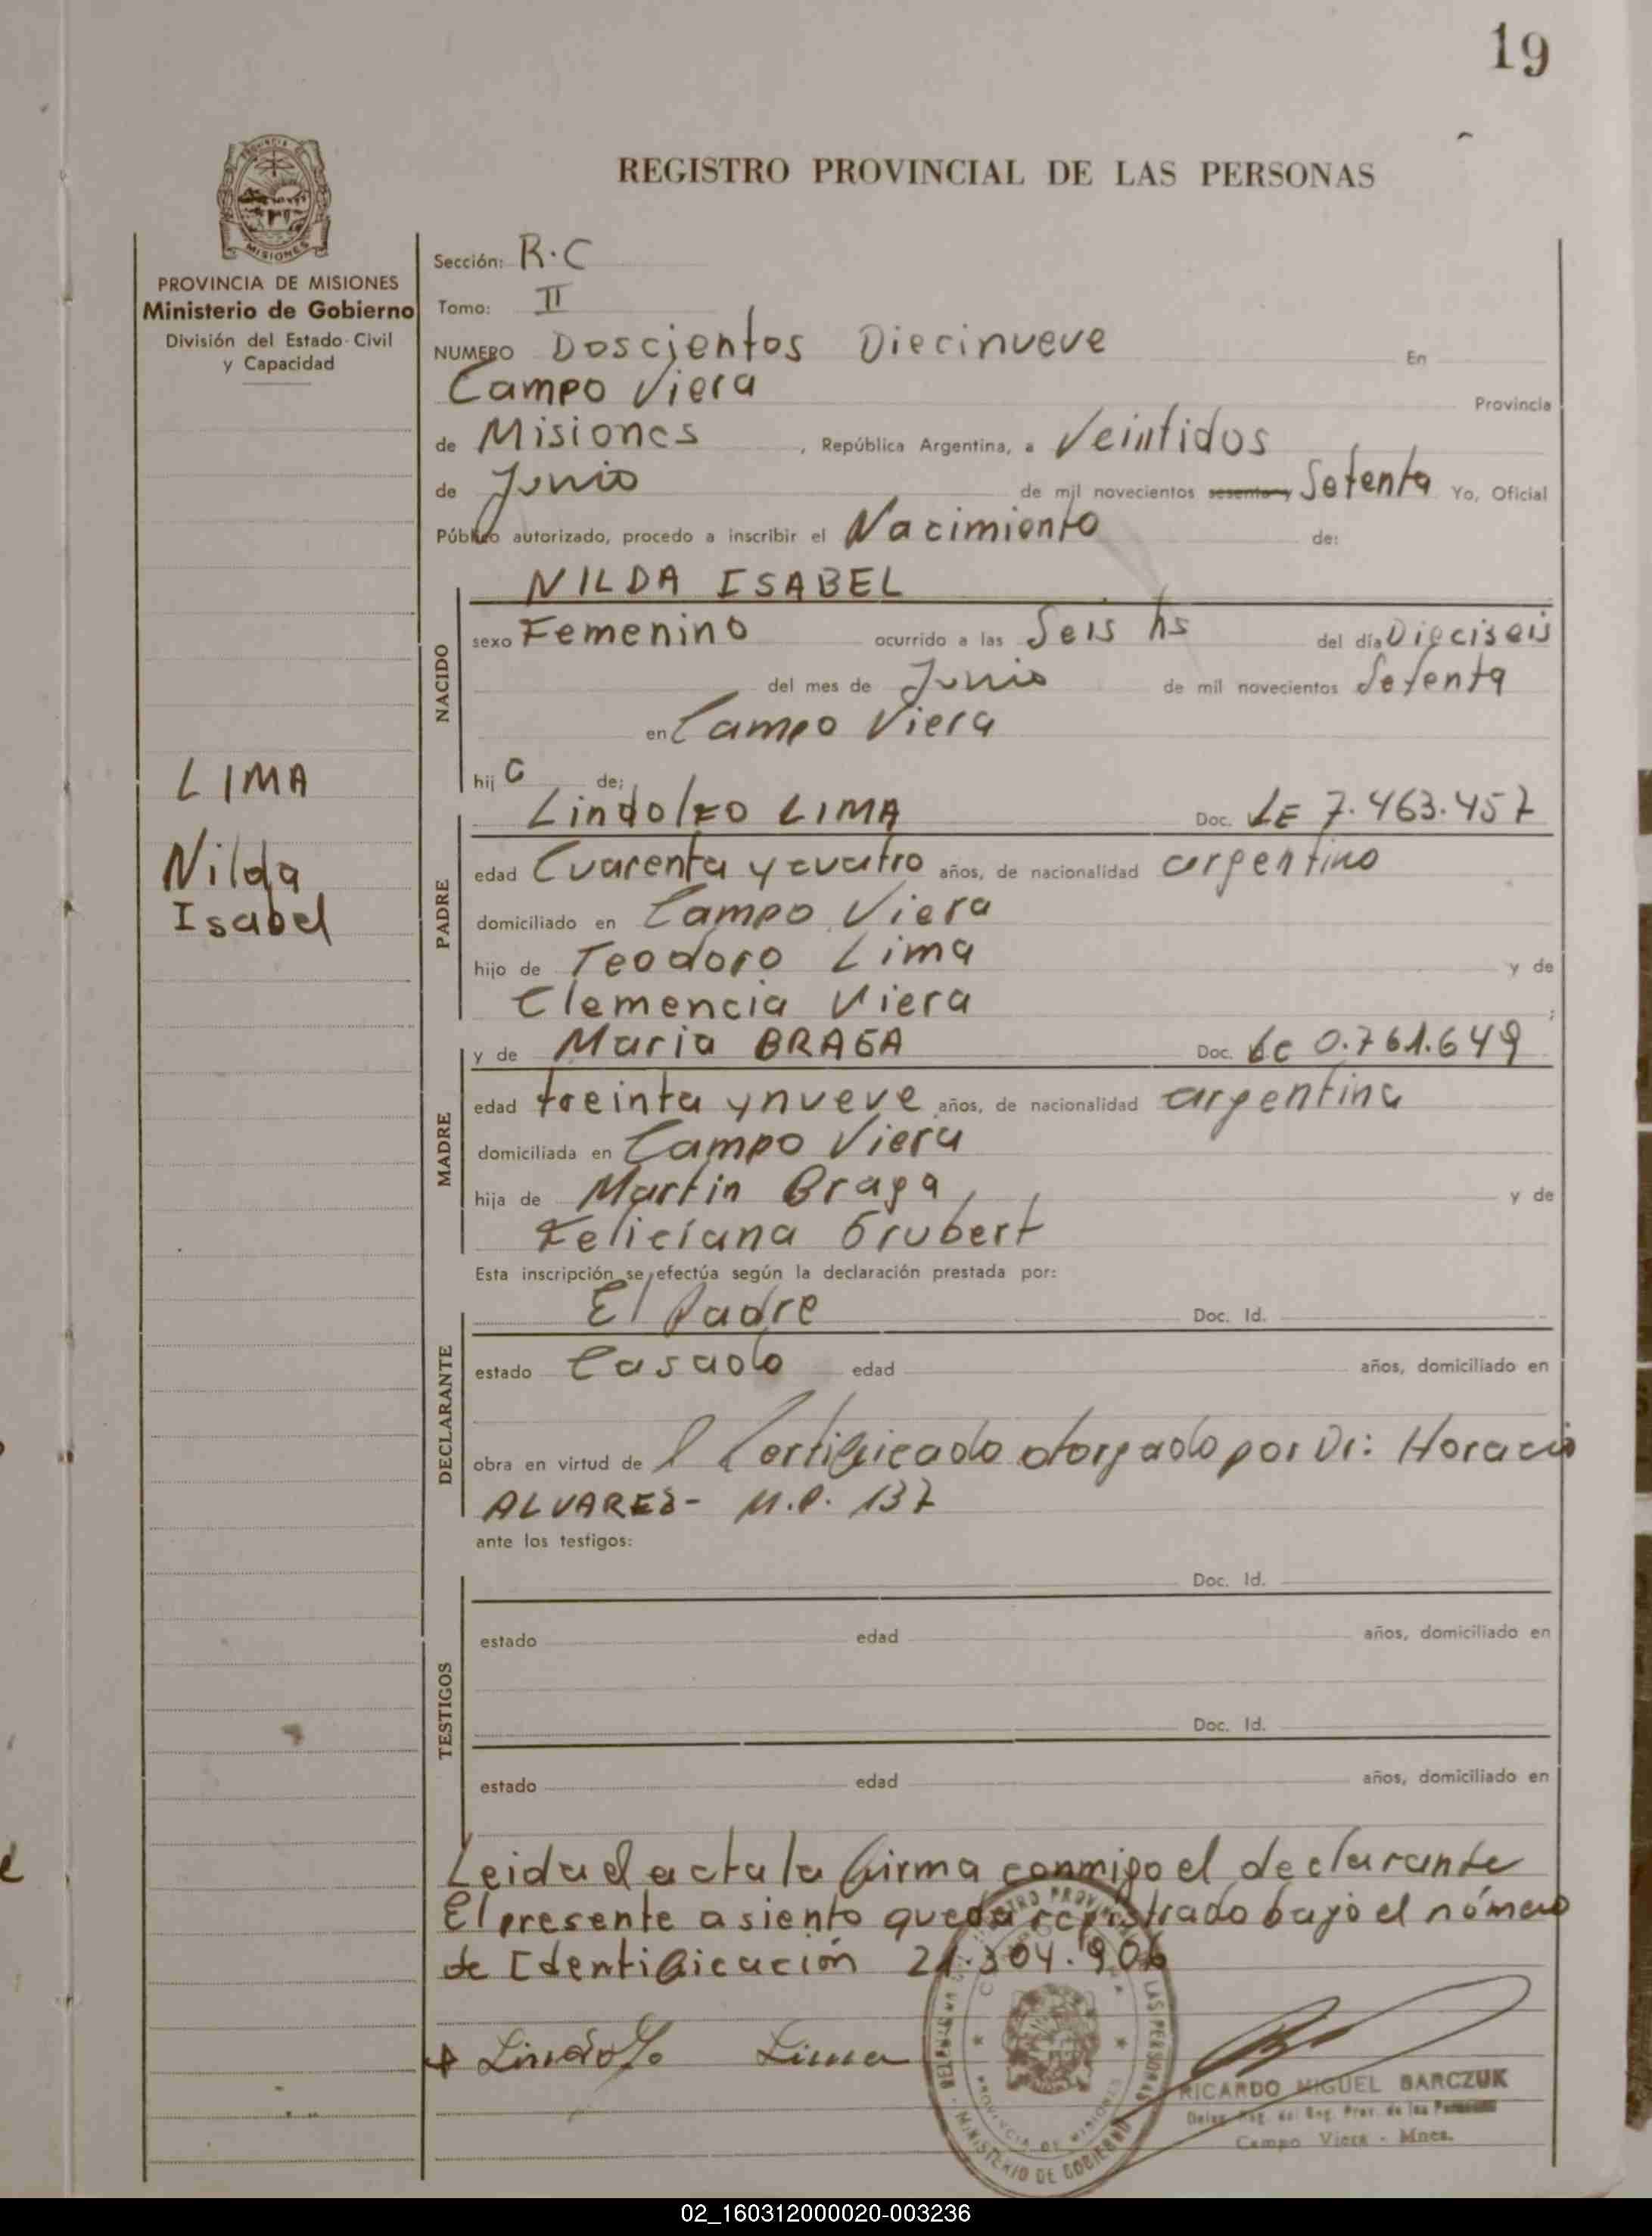 19
REGISTRO PROVINCIAL DE LAS PERSONAS
MISIONES
PROVINCIA DE MISIONES
Ministerio de Gobierno
División del Estado Civil
y Capacidad
LIMA
Nilda
Isabel
Sección: R.C
Tomo: II
NUMERO Doscientos Diecinueve En
Campo Viera Provincia
de Misiones, República Argentina, a Veintidos
de Junio de mil novecientos sesenta y Setenta Yo, Oficial
Público autorizado, procedo a inscribir el Nacimiento de:
NACIDO
NILDA ISABEL
sexo Femenino ocurrido a las Seis hs del día Dieciseis
del mes de Junio de mil novecientos Setenta
en Campo Viera
hija de:
PADRE
Lindolfo LIMA Doc. LE 7.463.457
edad Cuarenta y cuatro años, de nacionalidad argentino
domiciliado en Campo Viera
hijo de Teodoro Lima y de
Clemencia Viera ;
MADRE
y de Maria BRAGA Doc. LC 0.761.649
edad treinta y nueve años, de nacionalidad argentina
domiciliada en Campo Viera
hija de Martin Braga y de
Feliciana Grubert
Esta inscripción se efectúa según la declaración prestada por:
DECLARANTE
El Padre Doc. Id.
estado Casado edad años, domiciliado en
obra en virtud de l Certificado otorgado por Dr: Horacio
ALVARES- M.P. 137
ante los testigos:
TESTIGOS
Doc. Id.
estado edad años, domiciliado en
Doc. Id.
estado edad años, domiciliado en
Leida el acta la firma conmigo el declarante
El presente asiento queda registrado bajo el número
de Identificación 21.304.906
Lindolfo Lima
RICARDO MIGUEL BARCZUK
Campo Viera - Mnes.
MINISTERIO DE GOBIERNO
PROVINCIA DE MISIONES
02_160312000020-003236